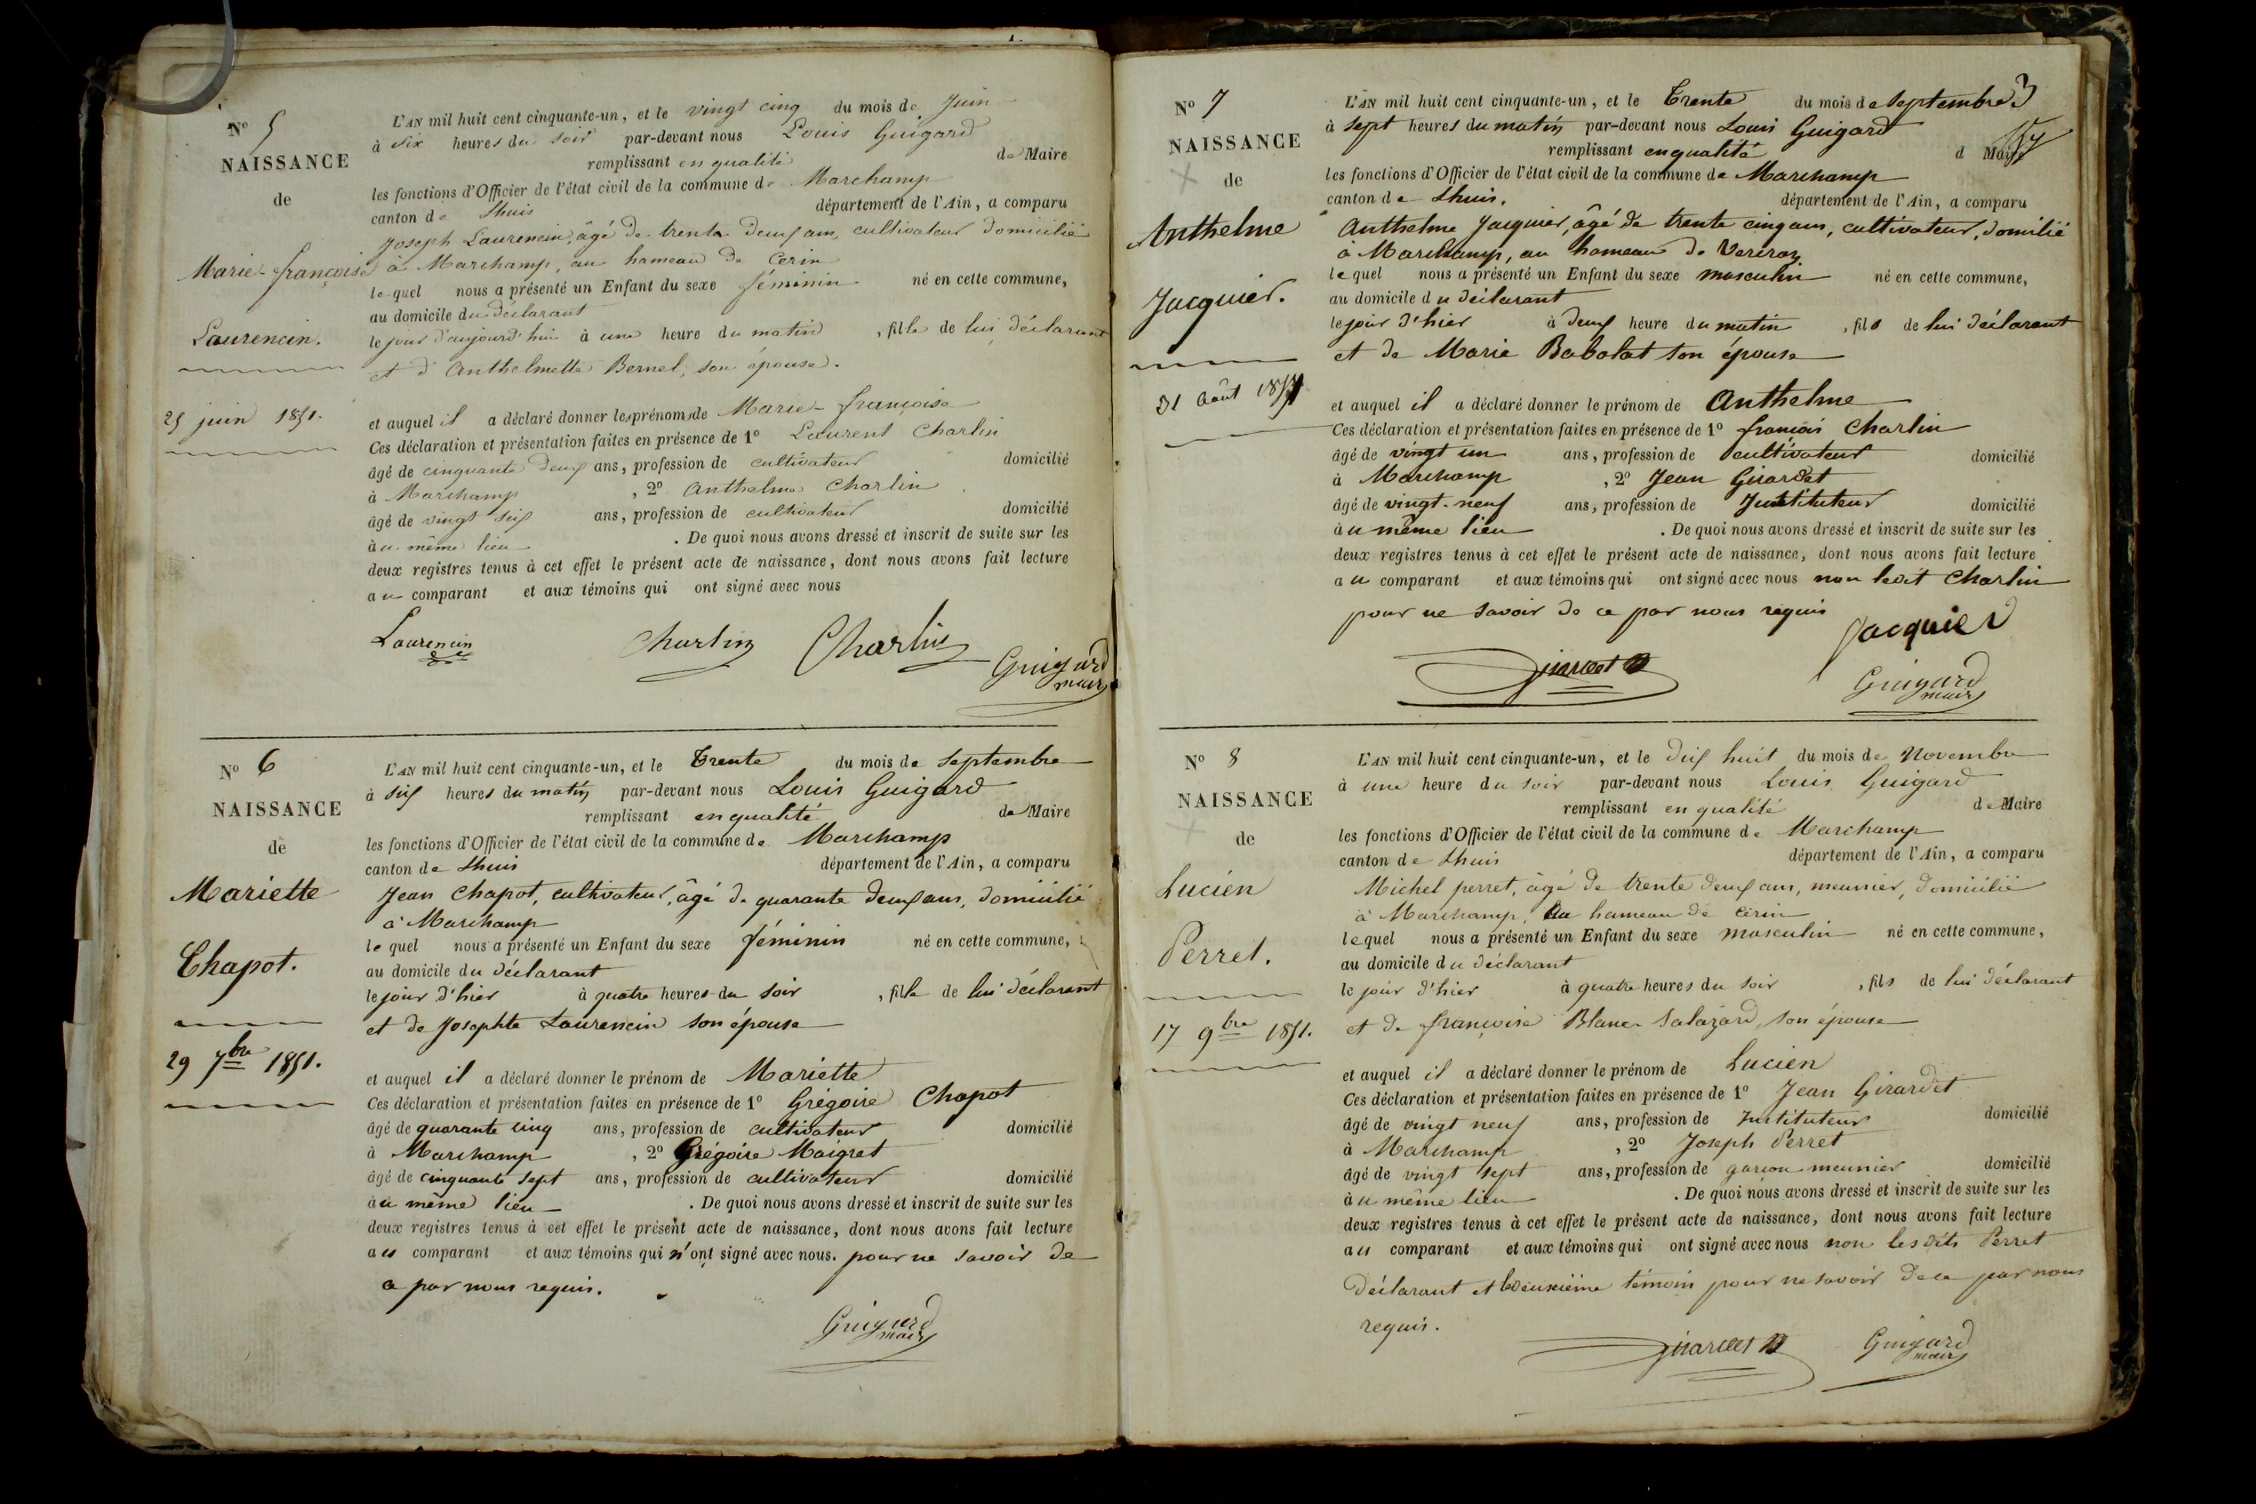 N° 5
NAISSANCE
de
Marie-françoise
Laurencin.
25 juin 1851.
L'AN mil huit cent cinquante-un, et le vingt cinq du mois de Juin
à Six heures du soir par-devant nous Louis Guigard
remplissant en qualité de Maire
les fonctions d'Officier de l'état civil de la commune de Marchamp
canton de Lhuis département de l'Ain, a comparu
Joseph Laurencin, âgé de trente deux ans, cultivateur domicilié
à Marchamp, au hameau de Cerin
lequel nous a présenté un Enfant du sexe féminin né en cette commune,
au domicile du déclarant
le jour d'aujourd'hui à une heure du matin, fille de lui déclarant
et d'Anthelmette Bernel, son épouse.
et auquel il a déclaré donner les prénoms de Marie-françoise
Ces déclaration et présentation faites en présence de 1° Laurent Charlin
âgé de cinquante deux ans, profession de cultivateur domicilié
à Marchamp, 2° Anthelme Charlin
âgé de vingt six ans, profession de cultivateur domicilié
au même lieu. De quoi nous avons dressé et inscrit de suite sur les
deux registres tenus à cet effet le présent acte de naissance, dont nous avons fait lecture
au comparant et aux témoins qui ont signé avec nous
Laurencin Charlin Charlin Guigard
maire
N° 6
NAISSANCE
de
Mariette
Chapot.
29 7bre 1851.
L'AN mil huit cent cinquante-un, et le Trente du mois de Septembre
à six heures du matin par-devant nous Louis Guigard
remplissant en qualité de Maire
les fonctions d'Officier de l'état civil de la commune de Marchamp
canton de Lhuis département de l'Ain, a comparu
Jean Chapot, cultivateur, âgé de quarante deux ans, domicilié
à Marchamp
lequel nous a présenté un Enfant du sexe féminin né en cette commune,
au domicile du déclarant
le jour d'hier à quatre heures du soir, fille de lui déclarant
et de Josephte Laurencin son épouse
et auquel il a déclaré donner le prénom de Mariette
Ces déclaration et présentation faites en présence de 1° Grégoire Chapot
âgé de quarante cinq ans, profession de cultivateur domicilié
à Marchamp, 2° Grégoire Maigret
âgé de cinquante sept ans, profession de cultivateur domicilié
au même lieu. De quoi nous avons dressé et inscrit de suite sur les
deux registres tenus à cet effet le présent acte de naissance, dont nous avons fait lecture
au comparant et aux témoins qui n'ont signé avec nous. pour ne savoir de
ce par nous requis.
Guigard
maire
3
N° 7
NAISSANCE
de
Anthelme
Jacquier.
31 Août 1851
L'AN mil huit cent cinquante-un, et le Trente du mois de Septembre
à sept heures du matin par-devant nous Louis Guigard
remplissant en qualité d Maire
les fonctions d'Officier de l'état civil de la commune de Marchamp
canton de Lhuis. département de l'Ain, a comparu
Anthelme Jacquier, âgé de trente cinq ans, cultivateur, domilié
à Marchamp, au hameau de
lequel nous a présenté un Enfant du sexe masculin né en cette commune,
au domicile du déclarant
le jour d'hier à deux heure du matin, fils de lui déclarant
et de Marie Babolat son épouse
et auquel il a déclaré donner le prénom de Anthelme
Ces déclaration et présentation faites en présence de 1° françois Charlin
âgé de vingt un ans, profession de cultivateur domicilié
à Marchamp, 2° Jean Girardet
âgé de vingt-neuf ans, profession de Instituteur domicilié
au même lieu. De quoi nous avons dressé et inscrit de suite sur les
deux registres tenus à cet effet le présent acte de naissance, dont nous avons fait lecture
au comparant et aux témoins qui ont signé avec nous non ledit Charlin
pour ne savoir de ce par nous requis
Jacquier
Girardet Guigard
maire
N° 8
NAISSANCE
de
Lucien
Perret.
17 9bre 1851.
L'AN mil huit cent cinquante-un, et le dix huit du mois de Novembre
à une heure du soir par-devant nous Louis Guigard
remplissant en qualité de Maire
les fonctions d'Officier de l'état civil de la commune de Marchamp
canton de Lhuis département de l'Ain, a comparu
Michel perret, âgé de trente deux ans, meunier, domicilié
à Marchamp, au hameau de Cerin
lequel nous a présenté un Enfant du sexe masculin né en cette commune,
au domicile du déclarant
le jour d'hier à quatre heures du soir, fils de lui déclarant
et de françoise Blanc Salazard, son épouse
et auquel il a déclaré donner le prénom de Lucien
Ces déclaration et présentation faites en présence de 1° Jean Girardet
âgé de vingt neuf ans, profession de Instituteur domicilié
à Marchamp, 2° Joseph Perret
âgé de vingt sept ans, profession de garcon meunier domicilié
au même lieu. De quoi nous avons dressé et inscrit de suite sur les
deux registres tenus à cet effet le présent acte de naissance, dont nous avons fait lecture
au comparant et aux témoins qui ont signé avec nous non les dits Perret
Déclarant et le deuxième témoin pour ne savoir de ce par nous
requis.
Girardet Guigard
maire